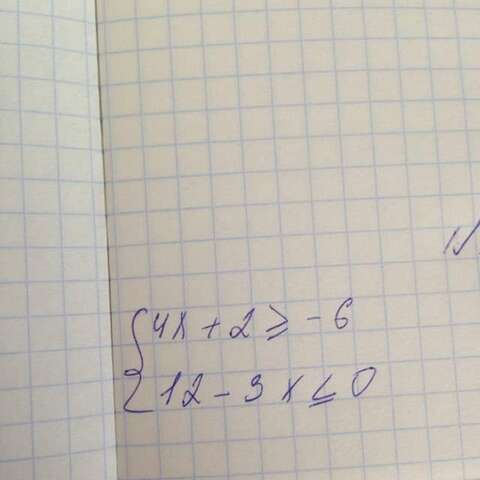 {4x + 2 ≥ -6
{12 - 3x ≤ 0